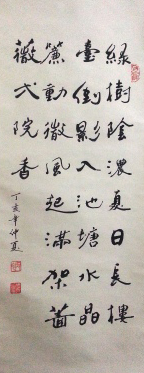 綠樹陰濃夏日長樓
臺倒影入池塘水晶
簾動微風起滿架薔
薇弌院香
丁亥年仲夏